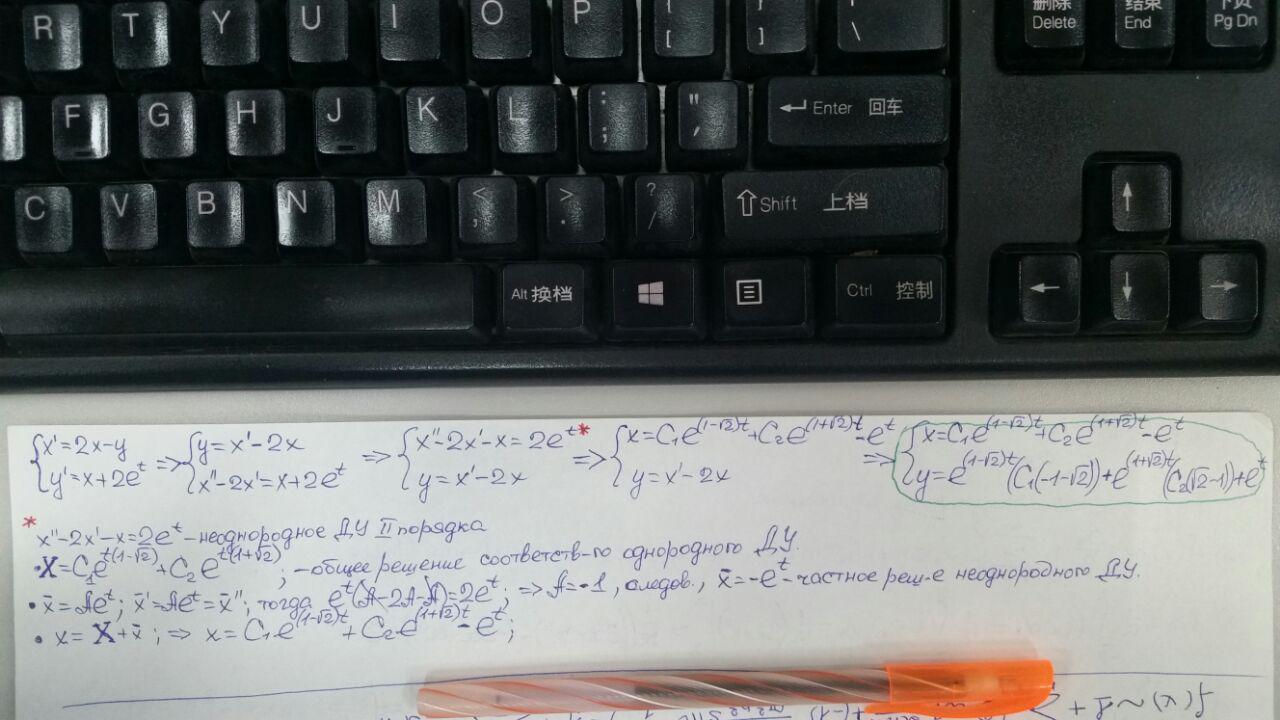 R T Y U I O P { [ } ] | \ 删除 Delete 结束 End 下页 Pg Dn
F G H J K L : ; " ' Enter 回车
C V B N M < , > . ? / Shift 上档
Alt 换档 Ctrl 控制
{x'=2x-y => {y=x'-2x => {x''-2x'-x=2e^t* => {x=C₁e^(1-√2)t+C₂e^(1+√2)t-e^t => {x=C₁e^(1-√2)t+C₂e^(1+√2)t-e^t
{y'=x+2e^t {x''-2x'=x+2e^t {y=x'-2x {y=x'-2x {y=e^(1-√2)t(C₁(-1-√2))+e^(1+√2)t(C₂(√2-1))+e^t
* x''-2x'-x=2e^t - неоднородное ДУ II порядка
• X=C₁e^t(1-√2)+C₂e^t(1+√2); - общее решение соответств-го однородного ДУ.
• x̄=Ae^t; x̄'=Ae^t=x̄''; тогда e^t(A-2A-A)=2e^t; => A=-1, следов., x̄=-e^t - частное реш-е неоднородного ДУ.
• x=X+x̄; => x=C₁e^(1-√2)t+C₂e^(1+√2)t-e^t;